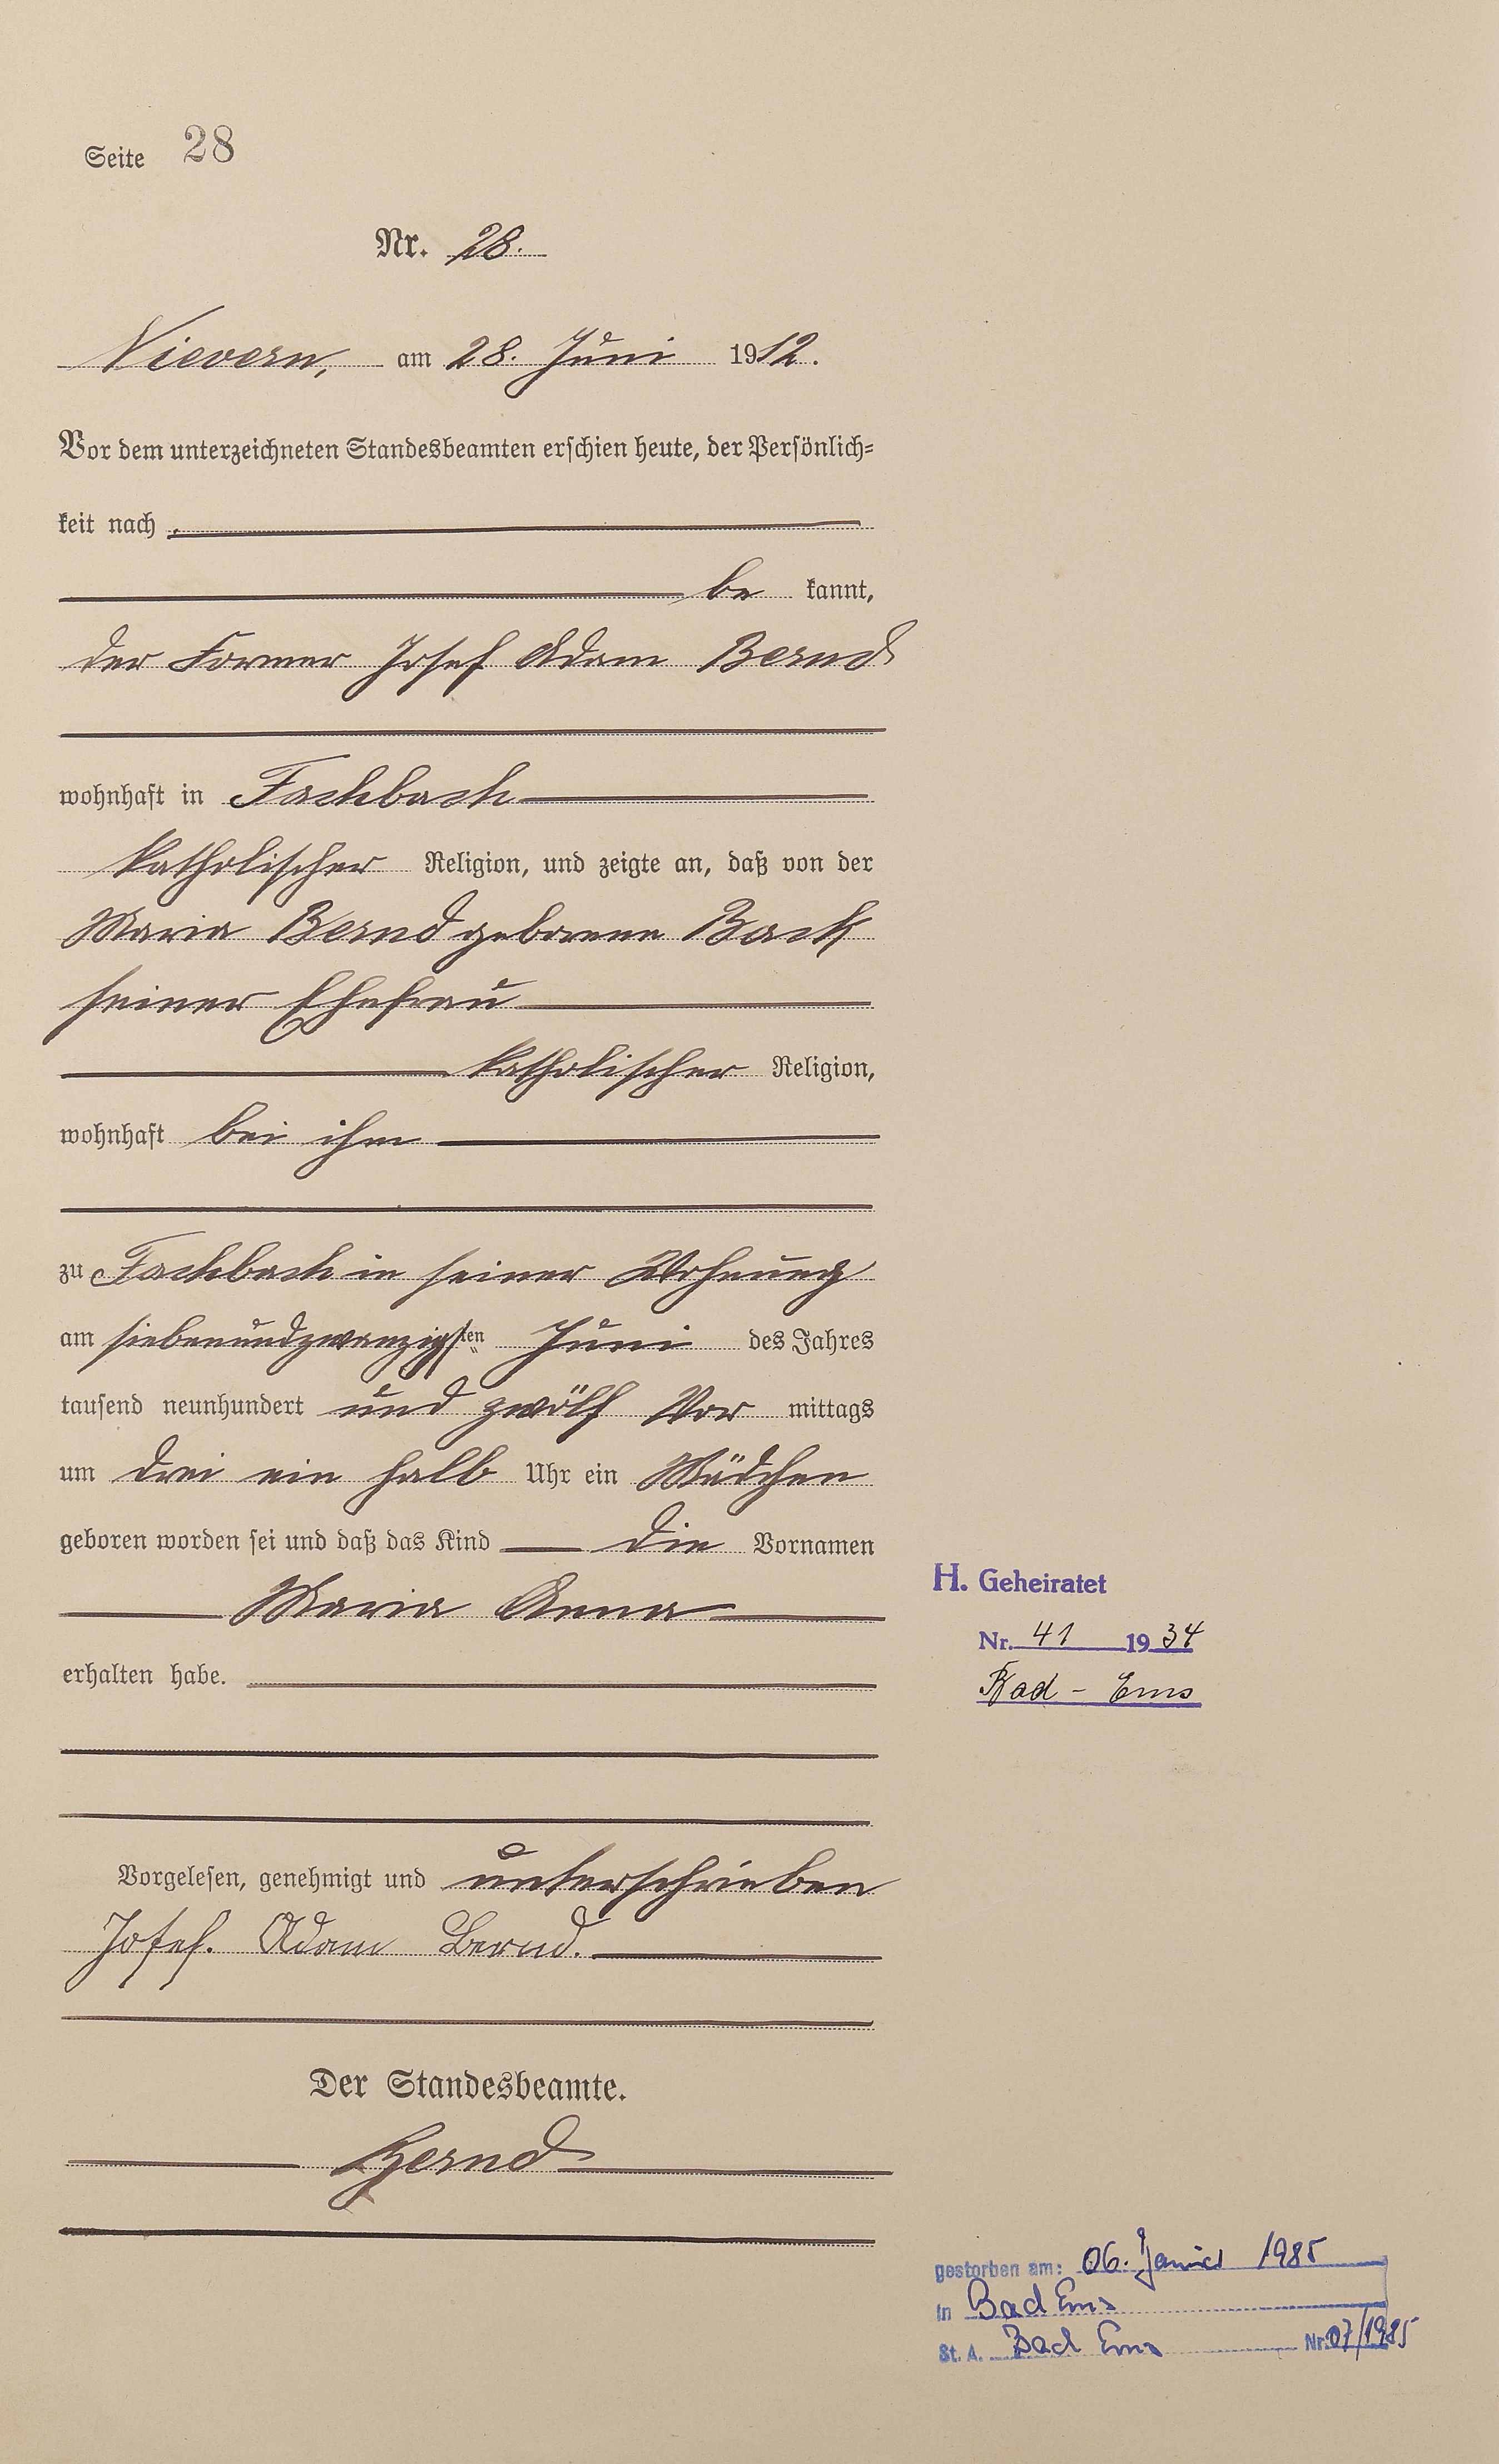 Seite 28
Nr. 28.
Nievern, am 28. Juni 1912.
Vor dem unterzeichneten Standesbeamten erschien heute, der Persönlich=
keit nach
be kannt,
der Former Josef Adam Bernd
wohnhaft in Fachbach
katholischer Religion, und zeigte an, daß von der
Maria Bernd geborene Back
seiner Ehefrau
katholischer Religion,
wohnhaft bei ihm
zu Fachbach in seiner Wohnung
am siebenundzwanzigsten Juni des Jahres
tausend neunhundert und zwölf Vor mittags
um drei ein halb Uhr ein Mädchen
geboren worden sei und daß das Kind die Vornamen
Maria Anna
erhalten habe.
H. Geheiratet
Nr. 41 1934
Bad - Ems
Vorgelesen, genehmigt und unterschrieben
Josef. Adam Bernd.
Der Standesbeamte.
Bernd
gestorben am: 06. Januar 1985
in Bad Ems
St. A. Bad Ems Nr. 07/1985